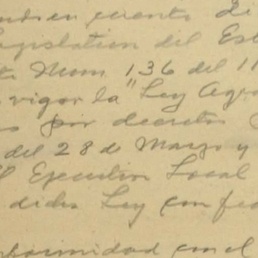 cuanto
Legislation del Est
Num 136 del 11
vigor la "Ley Agra
por decretos
del 28 de Marzo y
Ejecutivo Local
dicha Ley con fec
formidad con el